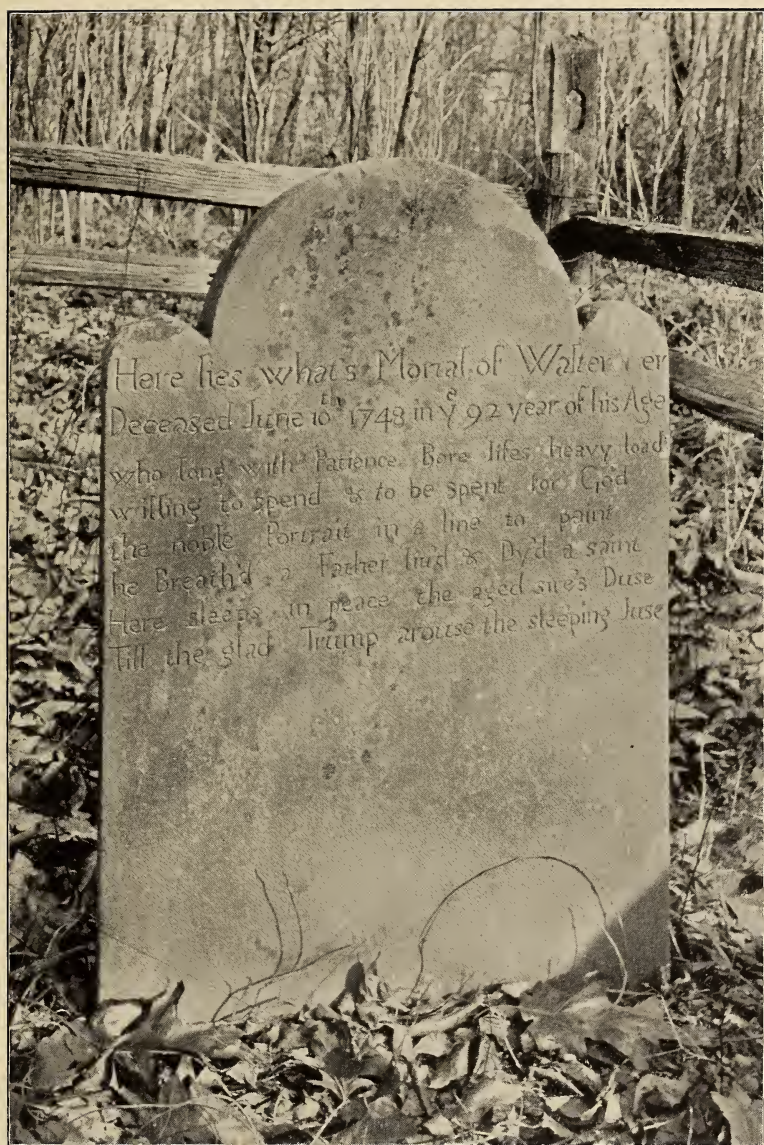 Here lies what's Mortal of Walter er
Deceased June 10th 1748 in ye 92 year of his Age
who long with Patience Bore lifes heavy load
willing to spend & to be spent for God
the noble Portrait in a line to paint
he Breath'd a Father liv'd & Dy'd a saint
Here sleeps in peace the aged sire's Duse
Till the glad Trump arouse the sleeping Juse